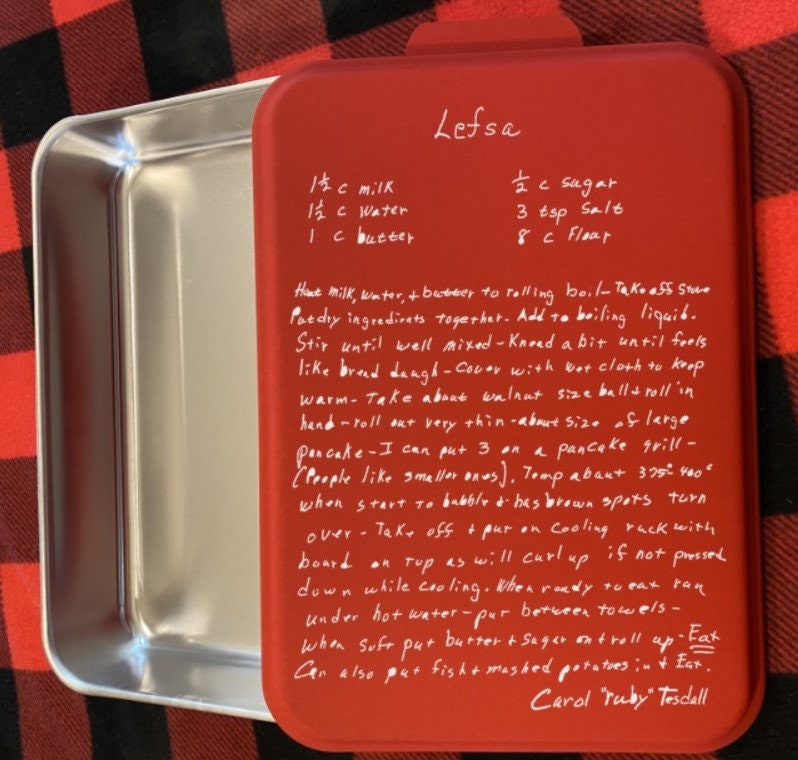 Lefsa
1½ c milk
½ c sugar
1½ c water
3 tsp salt
1 c butter
8 c flour
Heat milk, water, + butter to rolling boil - Take off stove
Put dry ingredients together. Add to boiling liquid.
Stir until well mixed - Knead a bit until feels
like bread daugh - cover with wet cloth to keep
warm - Take about walnut size ball + roll in
hand - roll out very thin - about size of large
pancake - I can put 3 on a pancake grill -
(People like smaller ones). Temp about 375° - 400°
when start to bubble + has brown spots turn
over - Take off + put on cooling rack with
board on top as will curl up if not pressed
down while cooling. When ready to eat run
under hot water - put between towels -
when soft put butter + sugar on + roll up - Eat
Can also put fish + mashed potatoes in + Eat.
Carol "ruby" Tesdall